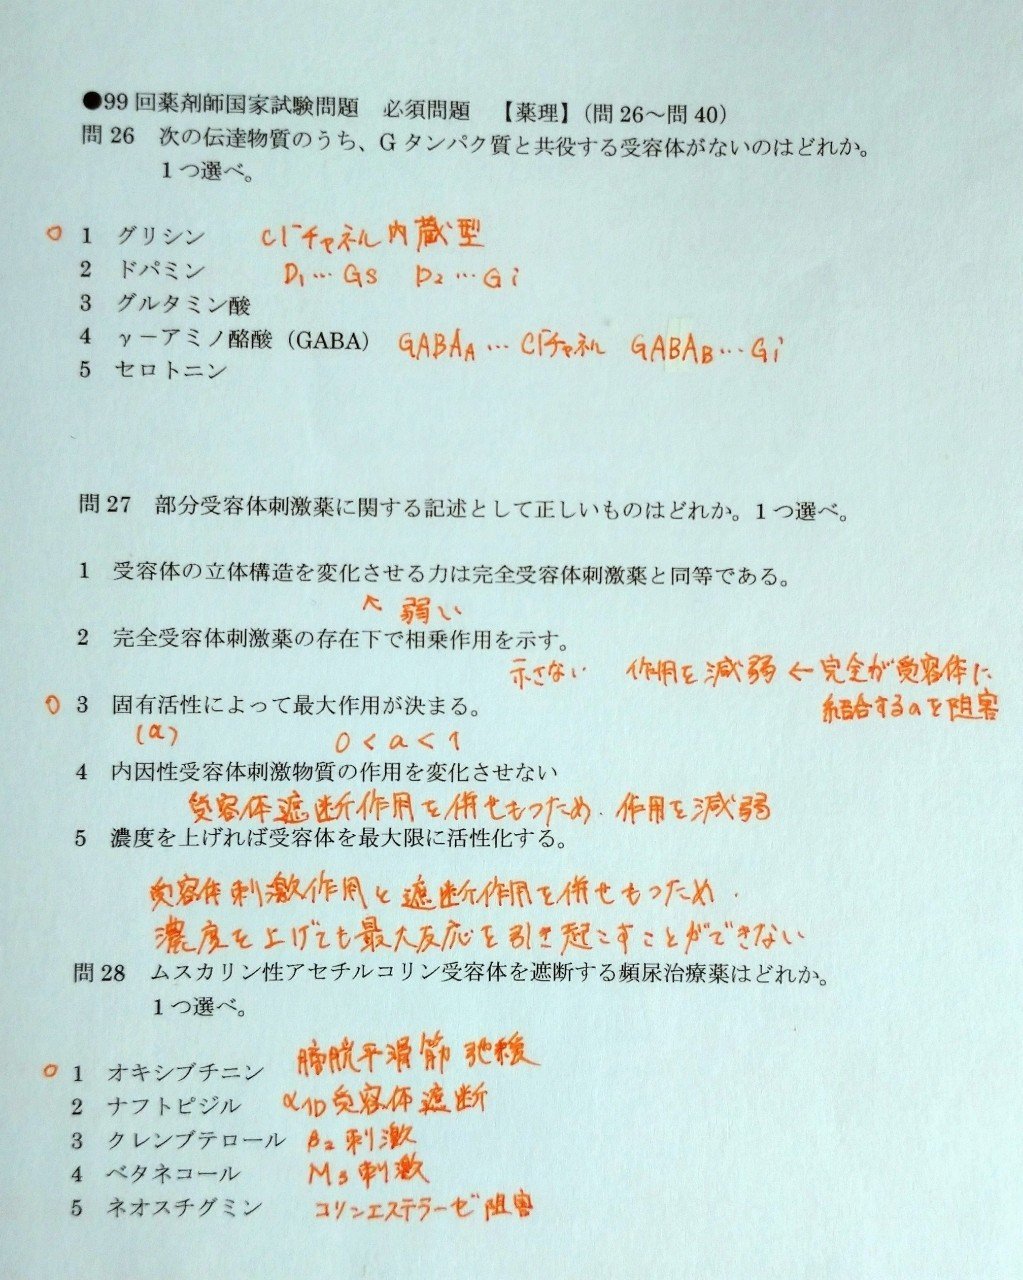 ●99回薬剤師国家試験問題　必須問題　【薬理】（問26～問40）
問26　次の伝達物質のうち、Gタンパク質と共役する受容体がないのはどれか。
1つ選べ。
○ 1　グリシン　Cl⁻チャネル内蔵型
2　ドパミン　D₁…Gs　D₂…Gi
3　グルタミン酸
4　γ－アミノ酪酸（GABA）　GABA_A…Cl⁻チャネル　GABA_B…Gi
5　セロトニン
問27　部分受容体刺激薬に関する記述として正しいものはどれか。1つ選べ。
1　受容体の立体構造を変化させる力は完全受容体刺激薬と同等である。
↖ 弱い
2　完全受容体刺激薬の存在下で相乗作用を示す。
示さない　作用を減弱 ← 完全が受容体に
結合するのを阻害
○ 3　固有活性によって最大作用が決まる。
(α)　0 < α < 1
4　内因性受容体刺激物質の作用を変化させない
受容体遮断作用を併せもつため、作用を減弱
5　濃度を上げれば受容体を最大限に活性化する。
受容体刺激作用と遮断作用を併せもつため、
濃度を上げても最大反応を引き起こすことができない
問28　ムスカリン性アセチルコリン受容体を遮断する頻尿治療薬はどれか。
1つ選べ。
○ 1　オキシブチニン　膀胱平滑筋弛緩
2　ナフトピジル　α1D受容体遮断
3　クレンブテロール　β₂刺激
4　ベタネコール　M₃刺激
5　ネオスチグミン　コリンエステラーゼ阻害